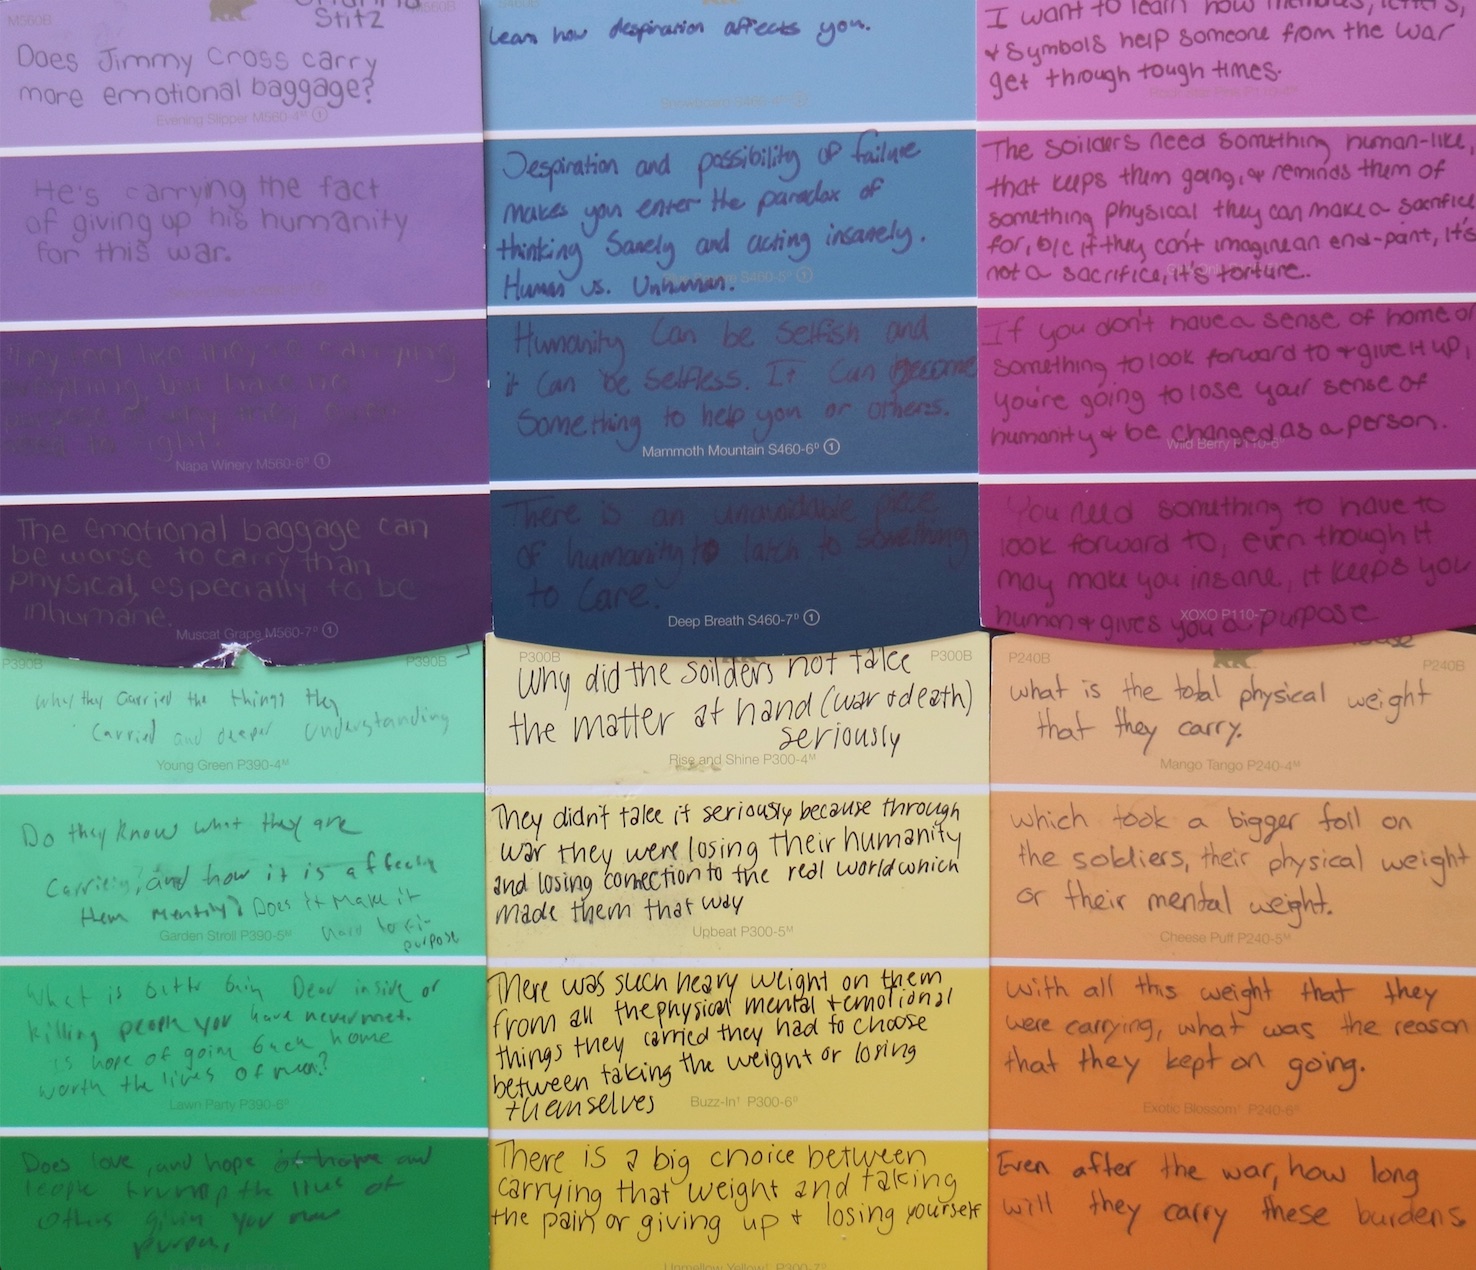 M560B
M560B
Stitz
Does Jimmy Cross carry
more emotional baggage?
Evening Slipper M560-4 ①
He's carrying the fact
of giving up his humanity
for this war.
they feel like they're carrying
everything, but have no
purpose of why they
Napa Winery M560-6ᴰ ①
The emotional baggage can
be worse to carry than
physical, especially to be
inhumane.
Muscat Grape M560-7ᴰ ①
learn how despiration affects you.
Despiration and possibility of failure
makes you enter the paradox of
thinking sanely and acting insanely.
Human vs. Unhuman.
S460-5ᴰ ①
Humanity can be selfish and
it can be selfless. It can become
something to help you or others.
Mammoth Mountain S460-6ᴰ ①
There is an unavoidable piece
of humanity to latch to something
to care.
Deep Breath S460-7ᴰ ①
I want to learn how memories, letters,
& symbols help someone from the war
get through tough times.
The soilders need something human-like,
that keeps them going, & reminds them of
something physical they can make a sacrifice
for, b/c if they can't imagine an end-point, it's
not a sacrifice, it's torture.
If you don't have a sense of home or
something to look forward to & give it up,
you're going to lose your sense of
humanity & be changed as a person.
Wild Berry P110-6ᴰ
You need something to have to
look forward to, even though it
may make you insane, it keeps you
human & gives you a purpose
XOXO P110-7
P390B
P390B
Why they carried the things they
carried and deeper understanding
Young Green P390-4ᴹ
Do they know what they are
carrying, and how it is affecting
them mentily? Does it make it
hard to
purpose
Garden Stroll P390-5ᴹ
What is bittr Dead inside or
killing people you have never met.
is hope of goin back home
worth the lives of
Lawn Party P390-6ᴰ
Does love, and hope and
people trump the lives of
others givin you
P300B
P300B
Why did the soilders not take
the matter at hand (war & death)
seriously
Rise and Shine P300-4ᴹ
They didn't take it seriously because through
war they were losing their humanity
and losing connection to the real world which
made them that way
Upbeat P300-5ᴹ
There was such heavy weight on them
from all the physical mental & emotional
things they carried they had to choose
between taking the weight or losing
themselves
Buzz-In† P300-6ᴰ
There is a big choice between
carrying that weight and taking
the pain or giving up & losing yourself
Unmellow Yellow† P300-7ᴰ
P240B
P240B
what is the total physical weight
that they carry.
Mango Tango P240-4ᴹ
which took a bigger toll on
the soldiers, their physical weight
or their mental weight.
Cheese Puff P240-5ᴹ
With all this weight that they
were carrying, what was the reason
that they kept on going.
Exotic Blossom† P240-6ᴰ
Even after the war, how long
will they carry these burdens